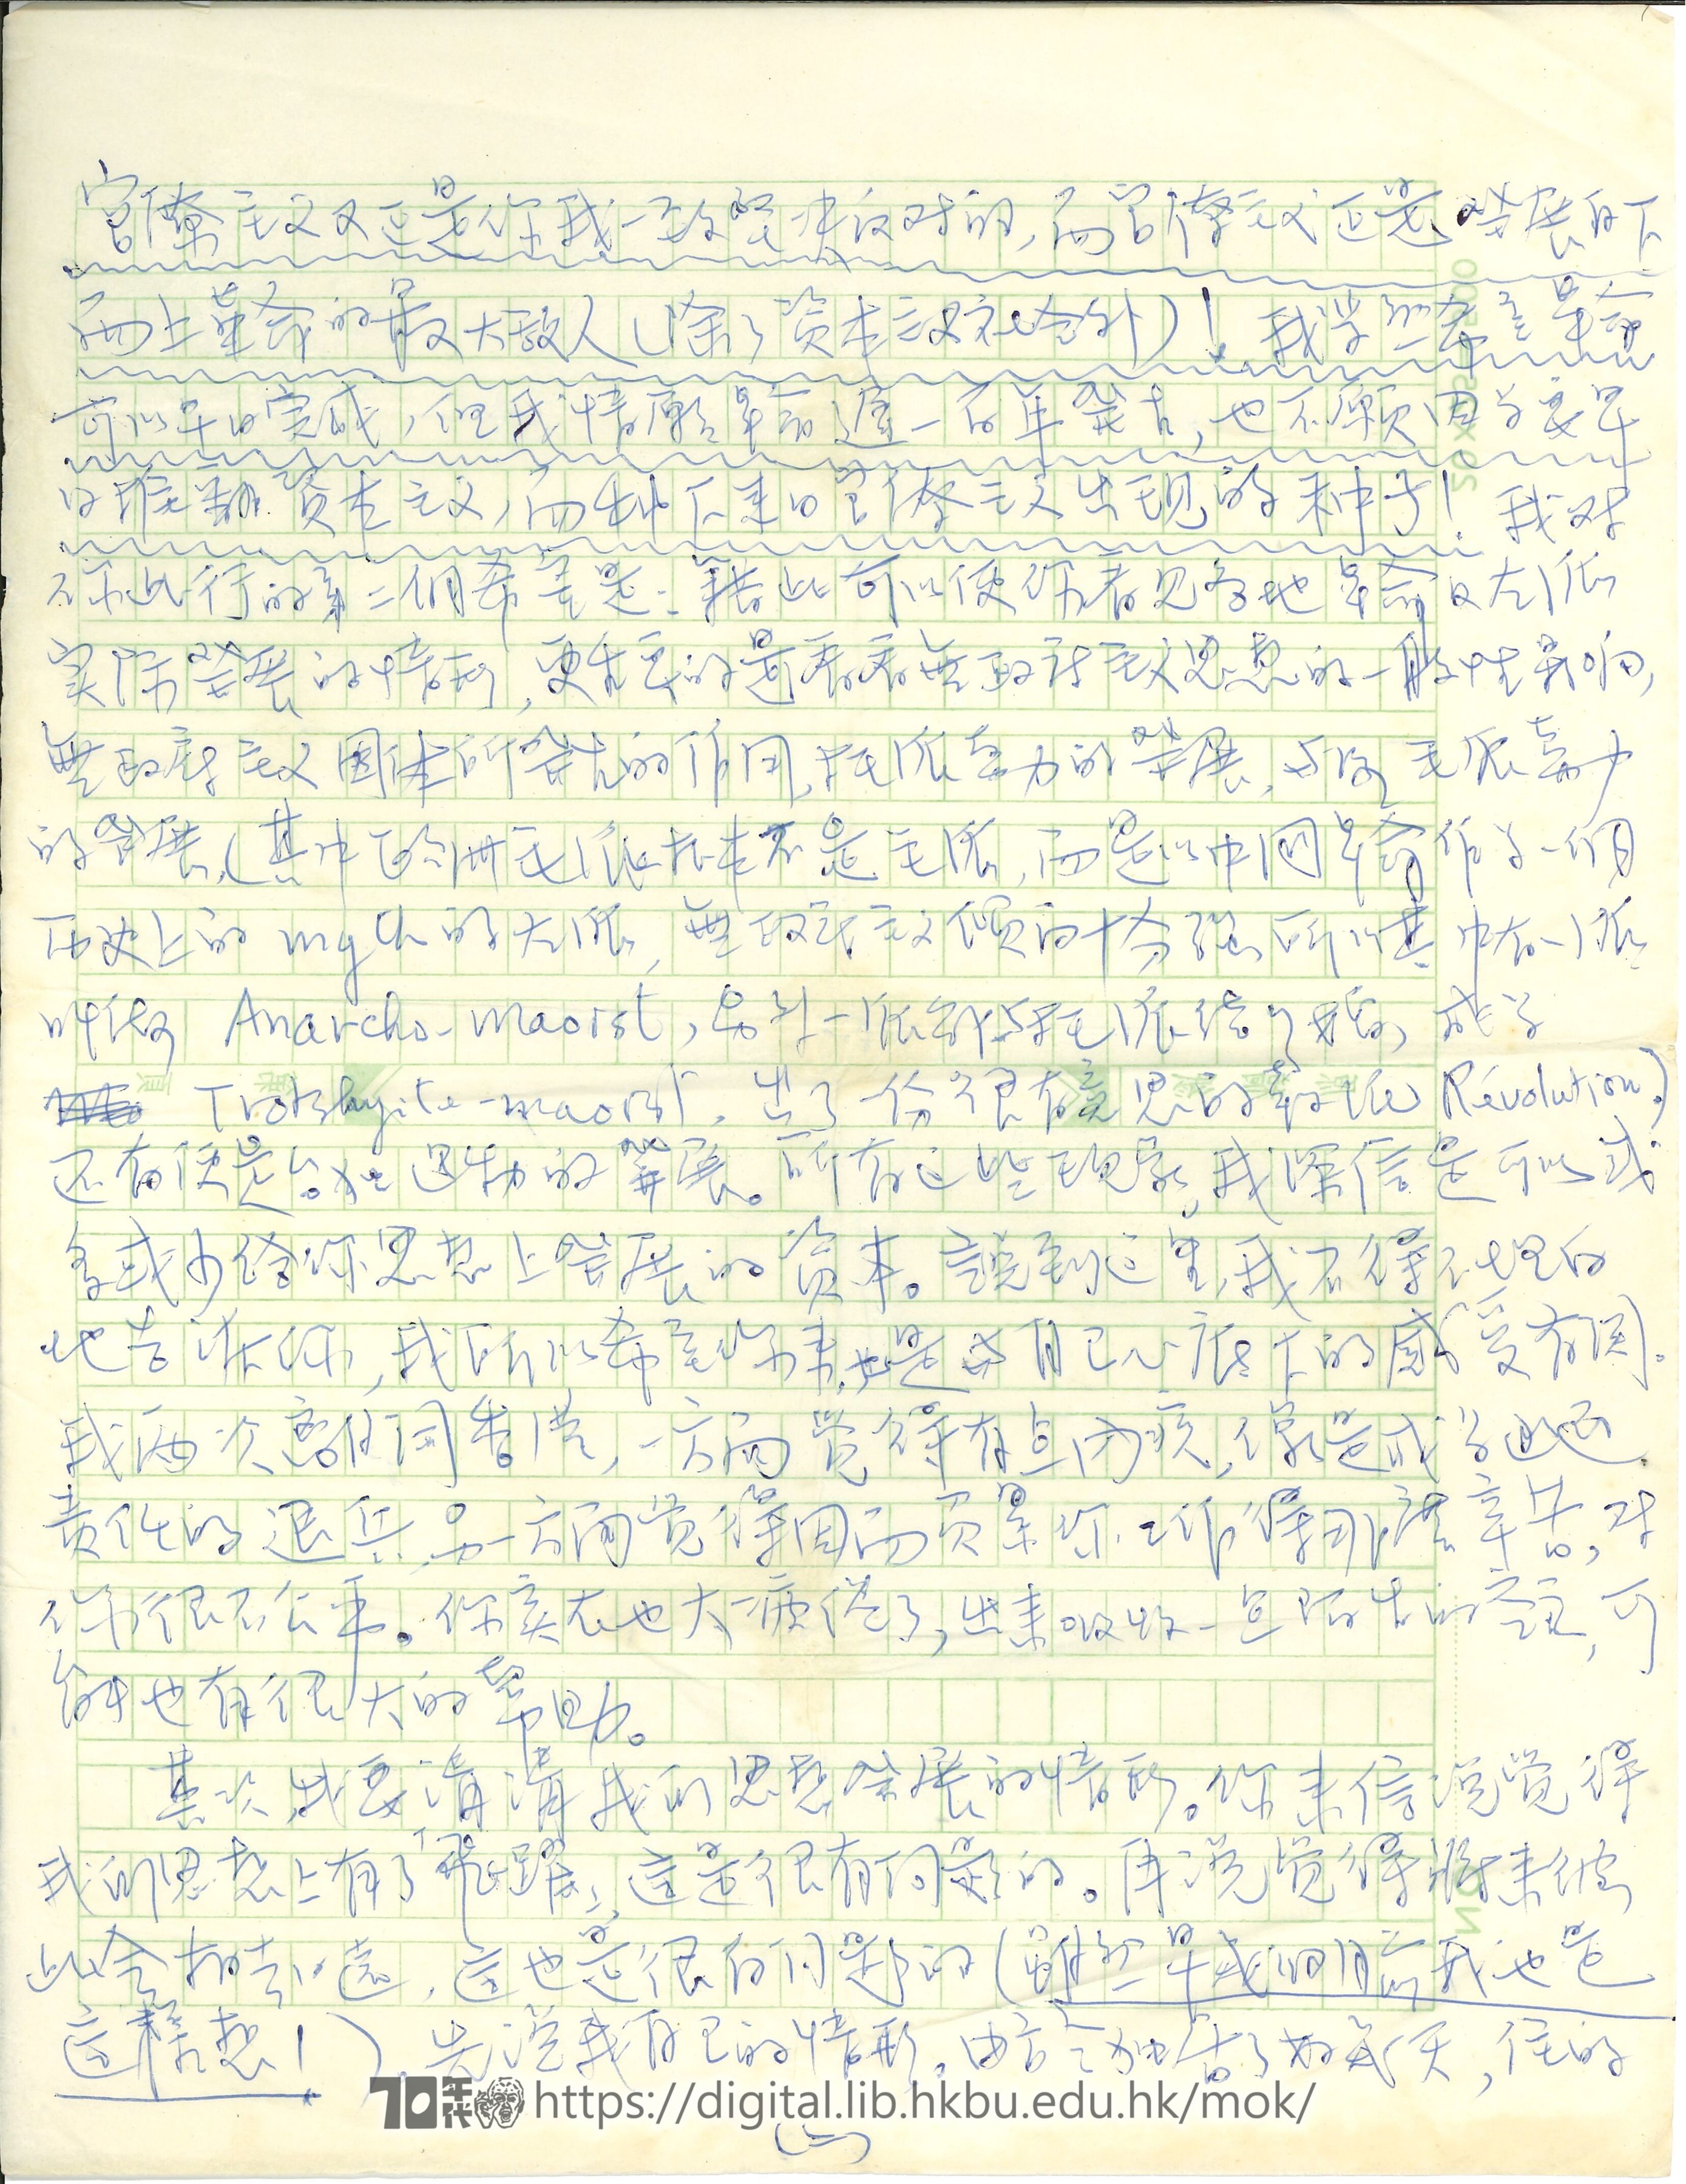 官僚主义又正是你我一致坚决反对的,而官僚主义正是發展由下
而上革命的最大敌人(除了资本主义社会外)! 我当然希望革命
可以早日完成,但我情愿革命遲一百年發生,也不願因为要早
日推翻资本主义,而种下来日官僚主义出现的种子! 我对
你此行的第二個希望是:藉此可以使你看见各地革命及左派
实际發展的情形,更重要的是看看無政府主义思想的一般性影响,
無政府主义團体所發生的作用,托派势力的發展,与及毛派势力
的發展,(其中欧洲毛派根本不是毛派,而是以中国革命作为一個
历史上的 myth 的左派,無政府主义倾向十分强,所以其中有一派
叫做 Anarcho-maoist,另外一派却与托派结了婚,成了
Trotskyite-maoist,出了一份很有意思的報纸 Révolution.)
还有便是台独运动的發展。所有这些现象,我深信是可以或
多或少给你思想上發展的资本。說到这里,我不得不坦白
地告诉你,我所以希望你来,也是与自己心底下的感受有関。
我两次离開香港,一方面觉得有点内疚,像是成为逃避
责任的退兵,另一方面觉得因而负累你工作得那麼辛苦,对
你很不公平。你实在也太疲倦了,出来吸收一点陌生的空气,可
能也有很大的帮助。
其次,我要講講我的思想發展的情形。你来信说觉得
我的思想上有了「飛躍」,這是很有问题的。再说觉得将来彼
此会相去日遠,這也是很有问题的(雖然早或個月前我也是
這樣想!)。先说我自己的情形。由于independent